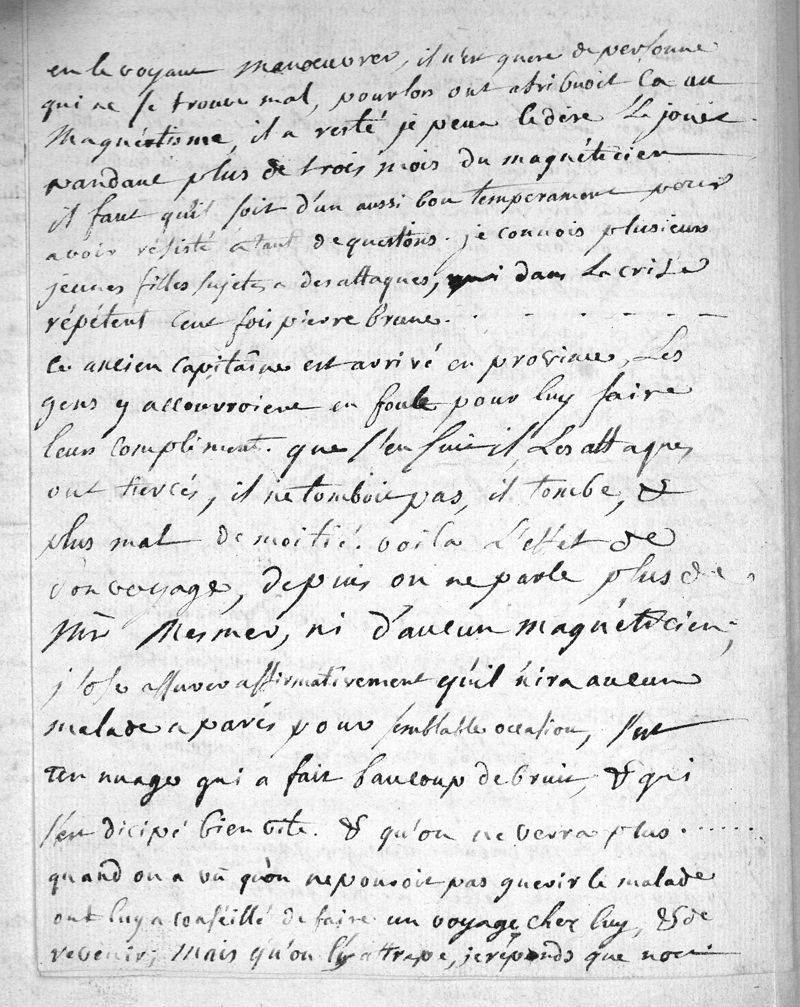 en le voyant manoeuvrer, il n'est guere de personne
qui ne se trouve mal, pourlors ont atribuoit ca au
Magnétisme, il a resté je peux le dire le jouèt
pandant plus de trois mois du magnéticien
il faut qu'il soit d'un aussi bon temperament pour
avoir résisté a tant de questions. je connois plusieurs
jeunes filles sujetes a des attaques, qui dans la crise
répétent cent fois pierre brune. . . . . . . .
ce ancien capitaine est arrivé en province, Les
gens y accouroient en foule pour luy faire
leurs compliment. que s'en suit il, Les attaques
ont forcés, il ne tomboit pas, il tombe, &
plus mal de moitié. voila L'effet de
son voyage, depuis on ne parle plus de
Mr Mesmer, ni d'aucun magnéticien;
j'ose assurer affirmativement qu'il n'ira aucun
malade a paris pour semblable occasion, s'est
un nuage qui a fait baucoup de bruit, & qui
s'est dicipé bien vite. & qu'on ne verra plus. . . . . . .
quand on a vû qu'on ne pouvoit pas guerir le malade
ont luy a conseillé de faire un voyage chez luy, & de
revenir; Mais qu'on l'y attrape, je reponds que non.